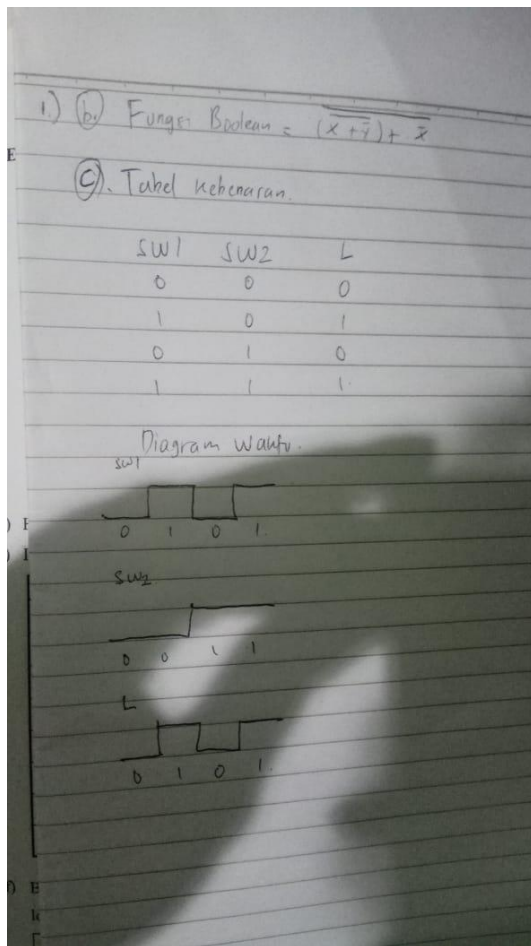 1.) (b.) Fungsi Boolean = \overline{\overline{(x + \bar{y})} + \bar{x}}
(C). Tabel Kebenaran.
SW1 SW2 L
0 0 0
1 0 1
0 1 0
1 1 1.
Diagram Waktu.
SW1
0 1 0 1.
SW2
0 0 1 1
L
0 1 0 1.